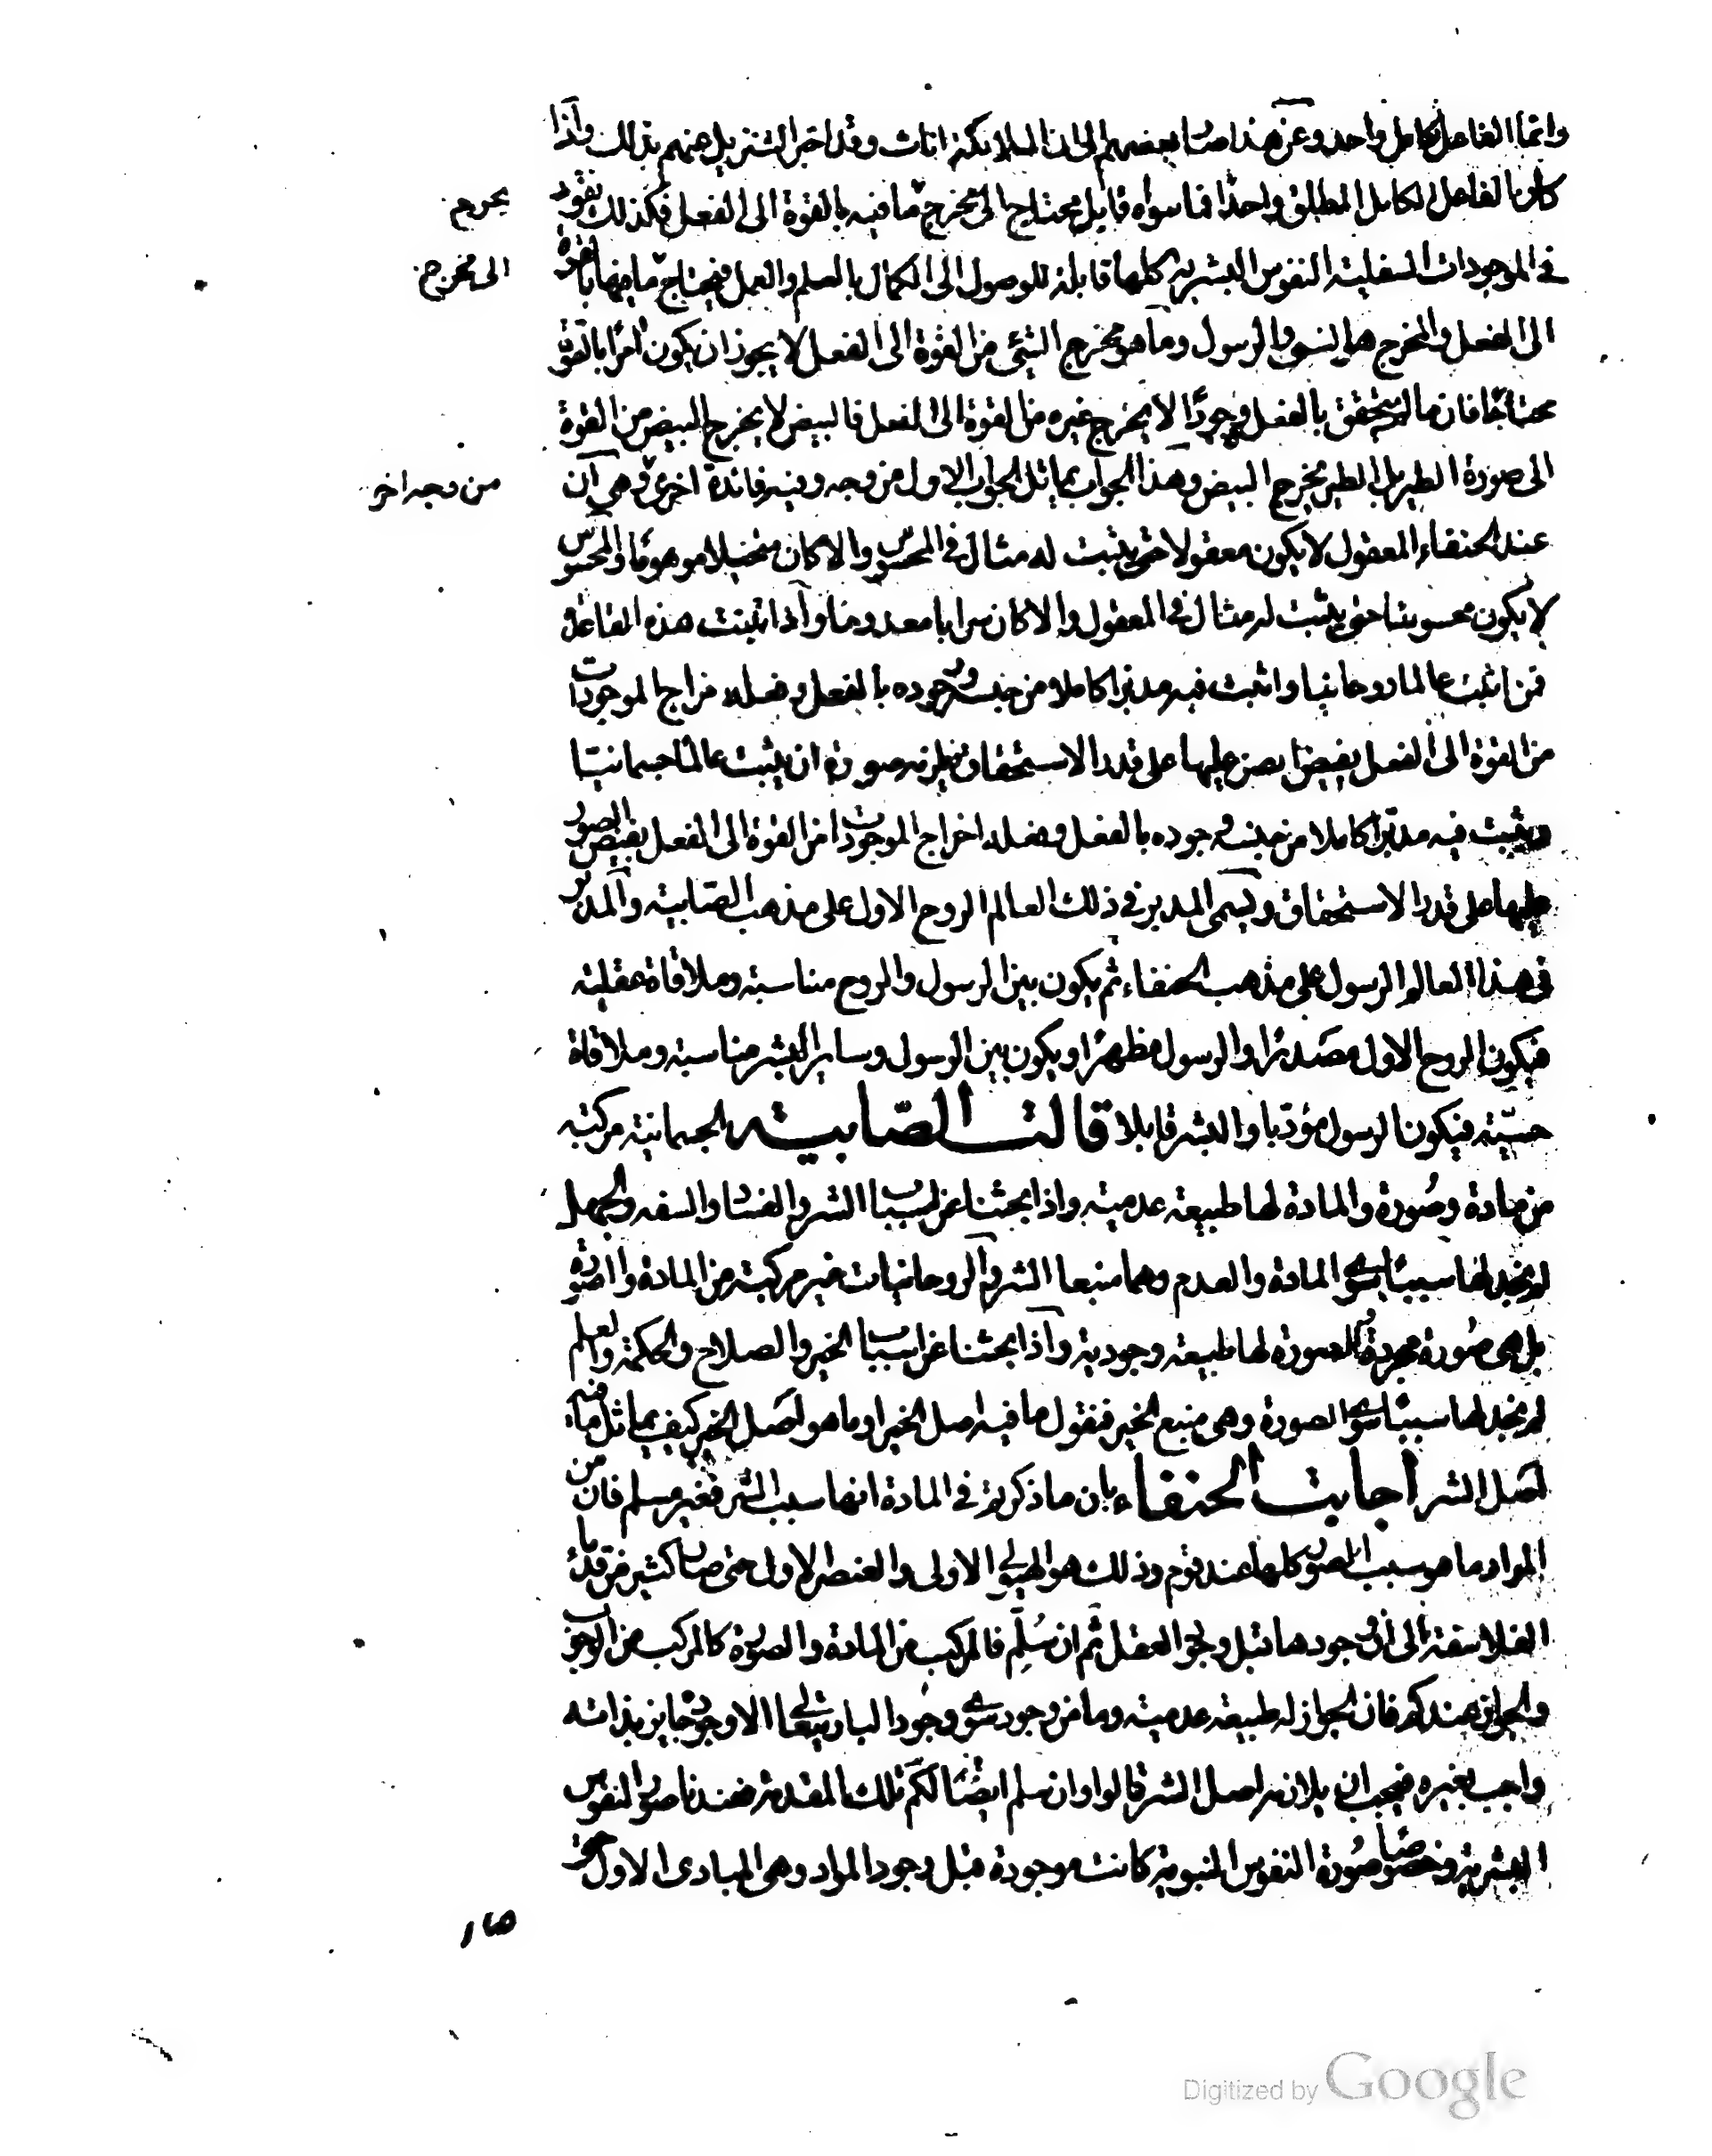 وانما الفاعل الكامل واحد وعن هذا صار بعضهم الى ان الملائكة اناث وقد اخبر التنزيل عنهم بذلك واذا
كان الفاعل الكامل المطلق واحدا فما سواه قابل محتاج الى مخرج ما فيه بالقوة الى الفعل فكذلك نقول
يخرج
في الموجودات السفلية النفوس البشرية كلها قابلة للوصول الى الكمال بالعلم والعمل فيحتاج ما فيها بالقوة
الى مخرج
الى الفعل والمخرج هو النبي والرسول وما هو مخرج الشئ من القوة الى الفعل لا يجوز ان يكون امرا بالقوة
محتاجا فان ما لم يتحقق بالفعل وجودا لا يخرج غيره من القوة الى الفعل فالبيض لا يخرج البيض من القوة
الى صورة الطير بل الطير يخرج البيض وهذا الجواب يماثل الجواب الاول من وجه وفيه فائدة اخرى وهي ان
من وجه اخر
عند الحنفاء المعقول لا يكون معقولا حتى يثبت له مثال في المحسوس والا كان متخيلا موهوما والمحسوس
لا يكون محسوسا حتى يثبت له مثال في المعقول والا كان سرابا معدوما واذا ثبتت هذه القاعدة
فمن اثبت عالما روحانيا واثبت فيه مدبرا كاملا من جنسه وجوده بالفعل وفعله اخراج الموجودات
من القوة الى الفعل بفيض الصور عليها على قدر الاستحقاق فيلزمه ضرورة ان يثبت عالما جسمانيا
ويثبت فيه مدبرا كاملا من جنسه وجوده بالفعل وفعله اخراج الموجودات من القوة الى الفعل بفيض الصور
عليها على قدر الاستحقاق ويسمى المدبر في ذلك العالم الروح الاول على مذهب الصابية والمدبر
في هذا العالم الرسول على مذهب الحنفاء ثم يكون بين الرسول والروح مناسبة وملاقاة عقلية
فيكون الروح الاول مصدرا والرسول مظهرا ويكون بين الرسول وساير البشر مناسبة وملاقاة
حسية فيكون الرسول مؤديا والبشر قابلا قالت الصابية الجسمانية مركبة
من مادة وصورة والمادة لها طبيعة عدمية واذا بحثنا عن اسباب الشر والفساد والسفه والجهل
لم نجد لها سببا سوى المادة والعدم وهما منبعا الشر والروحانيات غير مركبة من المادة والصورة
بل هي صورة مجردة والصورة لها طبيعة وجودية واذا بحثنا عن اسباب الخير والصلاح والحكمة والعلم
لم نجد لها سببا سوى الصورة وهي منبع الخير فنقول ما فيه اصل الخير او ما هو اصل الخير كيف يماثل ما فيه
اصل الشر اجابت الحنفاء بان ما ذكرتم في المادة انها سبب الشر فغير مسلم فان من
المواد ما هو سبب الصور كلها عند قوم وذلك هو الهيولى الاولى والعنصر الاول حتى صار كثير من قدماء
الفلاسفة الى ان وجودها قبل وجود العقل ثم ان سلم فالمركب من المادة والصورة كالمركب من الوجوب
والجواز عندكم فان الجواز له طبيعة عدمية وما من وجود سوى وجود الباري تعالى الا وجوده جايز بذاته
واجب بغيره فيجب ان يلازمه اصل الشر قالوا وان سلم ايضا لكم تلك المقدمة فعندنا صور النفوس
البشرية وخصوصا صورة النفوس النبوية كانت موجودة قبل وجود المواد وهي المبادي الاول حتى
صار
Digitized by Google